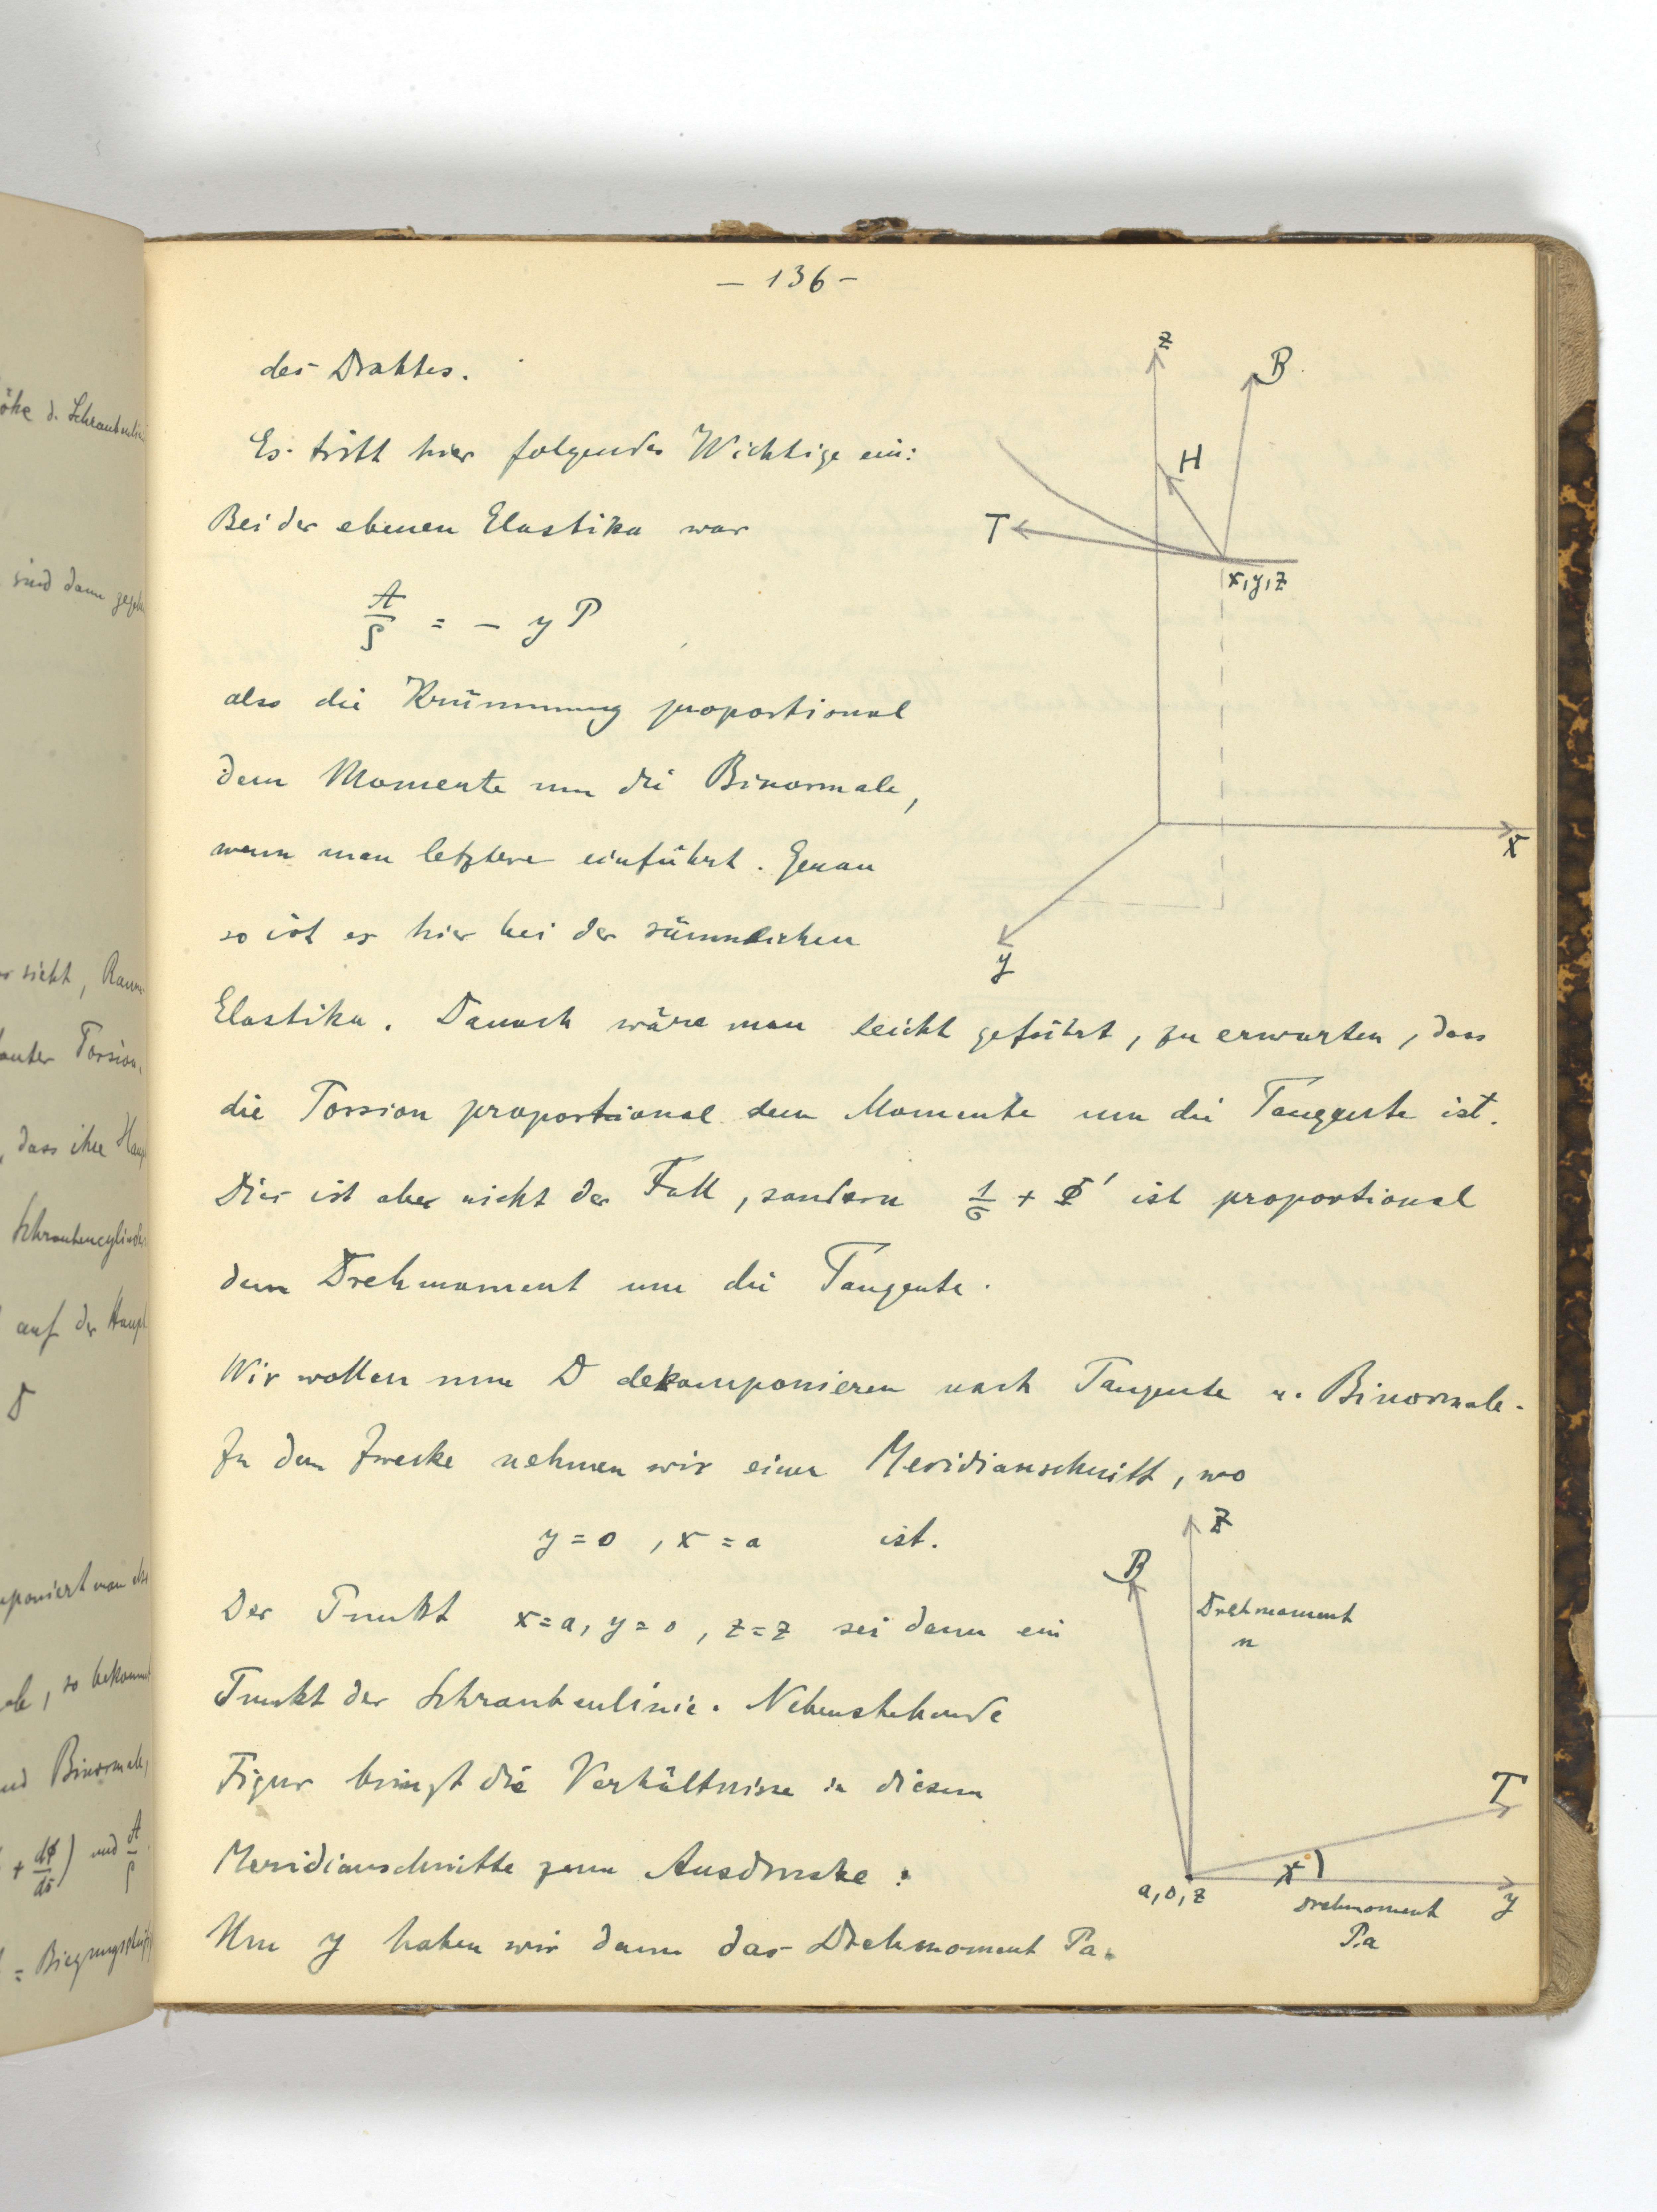 – 136 –
des Drahtes.
Es tritt hier folgendes Wichtige ein:
Bei der ebenen Elastika war
A/ρ = – y P
also die Krümmung proportional
dem Momente um die Binormale,
wenn man letztere einführt. Genau
so ist es hier bei der räumlichen
Elastika. Danach wäre man leicht geführt, zu erwarten, dass
die Torsion proportional dem Momente um die Tangente ist.
Dies ist aber nicht der Fall, sondern 1/σ + Φ' ist proportional
dem Drehmoment um die Tangente.
Wir wollen nun D dekomponieren nach Tangente u. Binormale.
Zu dem Zwecke nehmen wir einen Meridianschnitt, wo
y = 0 , x = a ist.
Der Punkt x = a, y = 0 , z = z sei dann ein
Punkt der Schraubenlinie. Nebenstehende
Figur bringt die Verhältnisse in diesem
Meridianschnitte zum Ausdrucke:
Um y haben wir dann das Drehmoment Pa.
z
B
H
T
x, y, z
x
y
z
B
Drehmoment
n
T
a, 0, z
y
Drehmoment
P.a
öhe d. Schraubenlin
sind dann gege
sicht, Raum
Torsion
dass ihre Haup
Schraubencylinder
auf der Haupt
D
poniert man
, so bekomm
und Binormale,
+ dΦ/ds) und A/ρ
= Biegungs